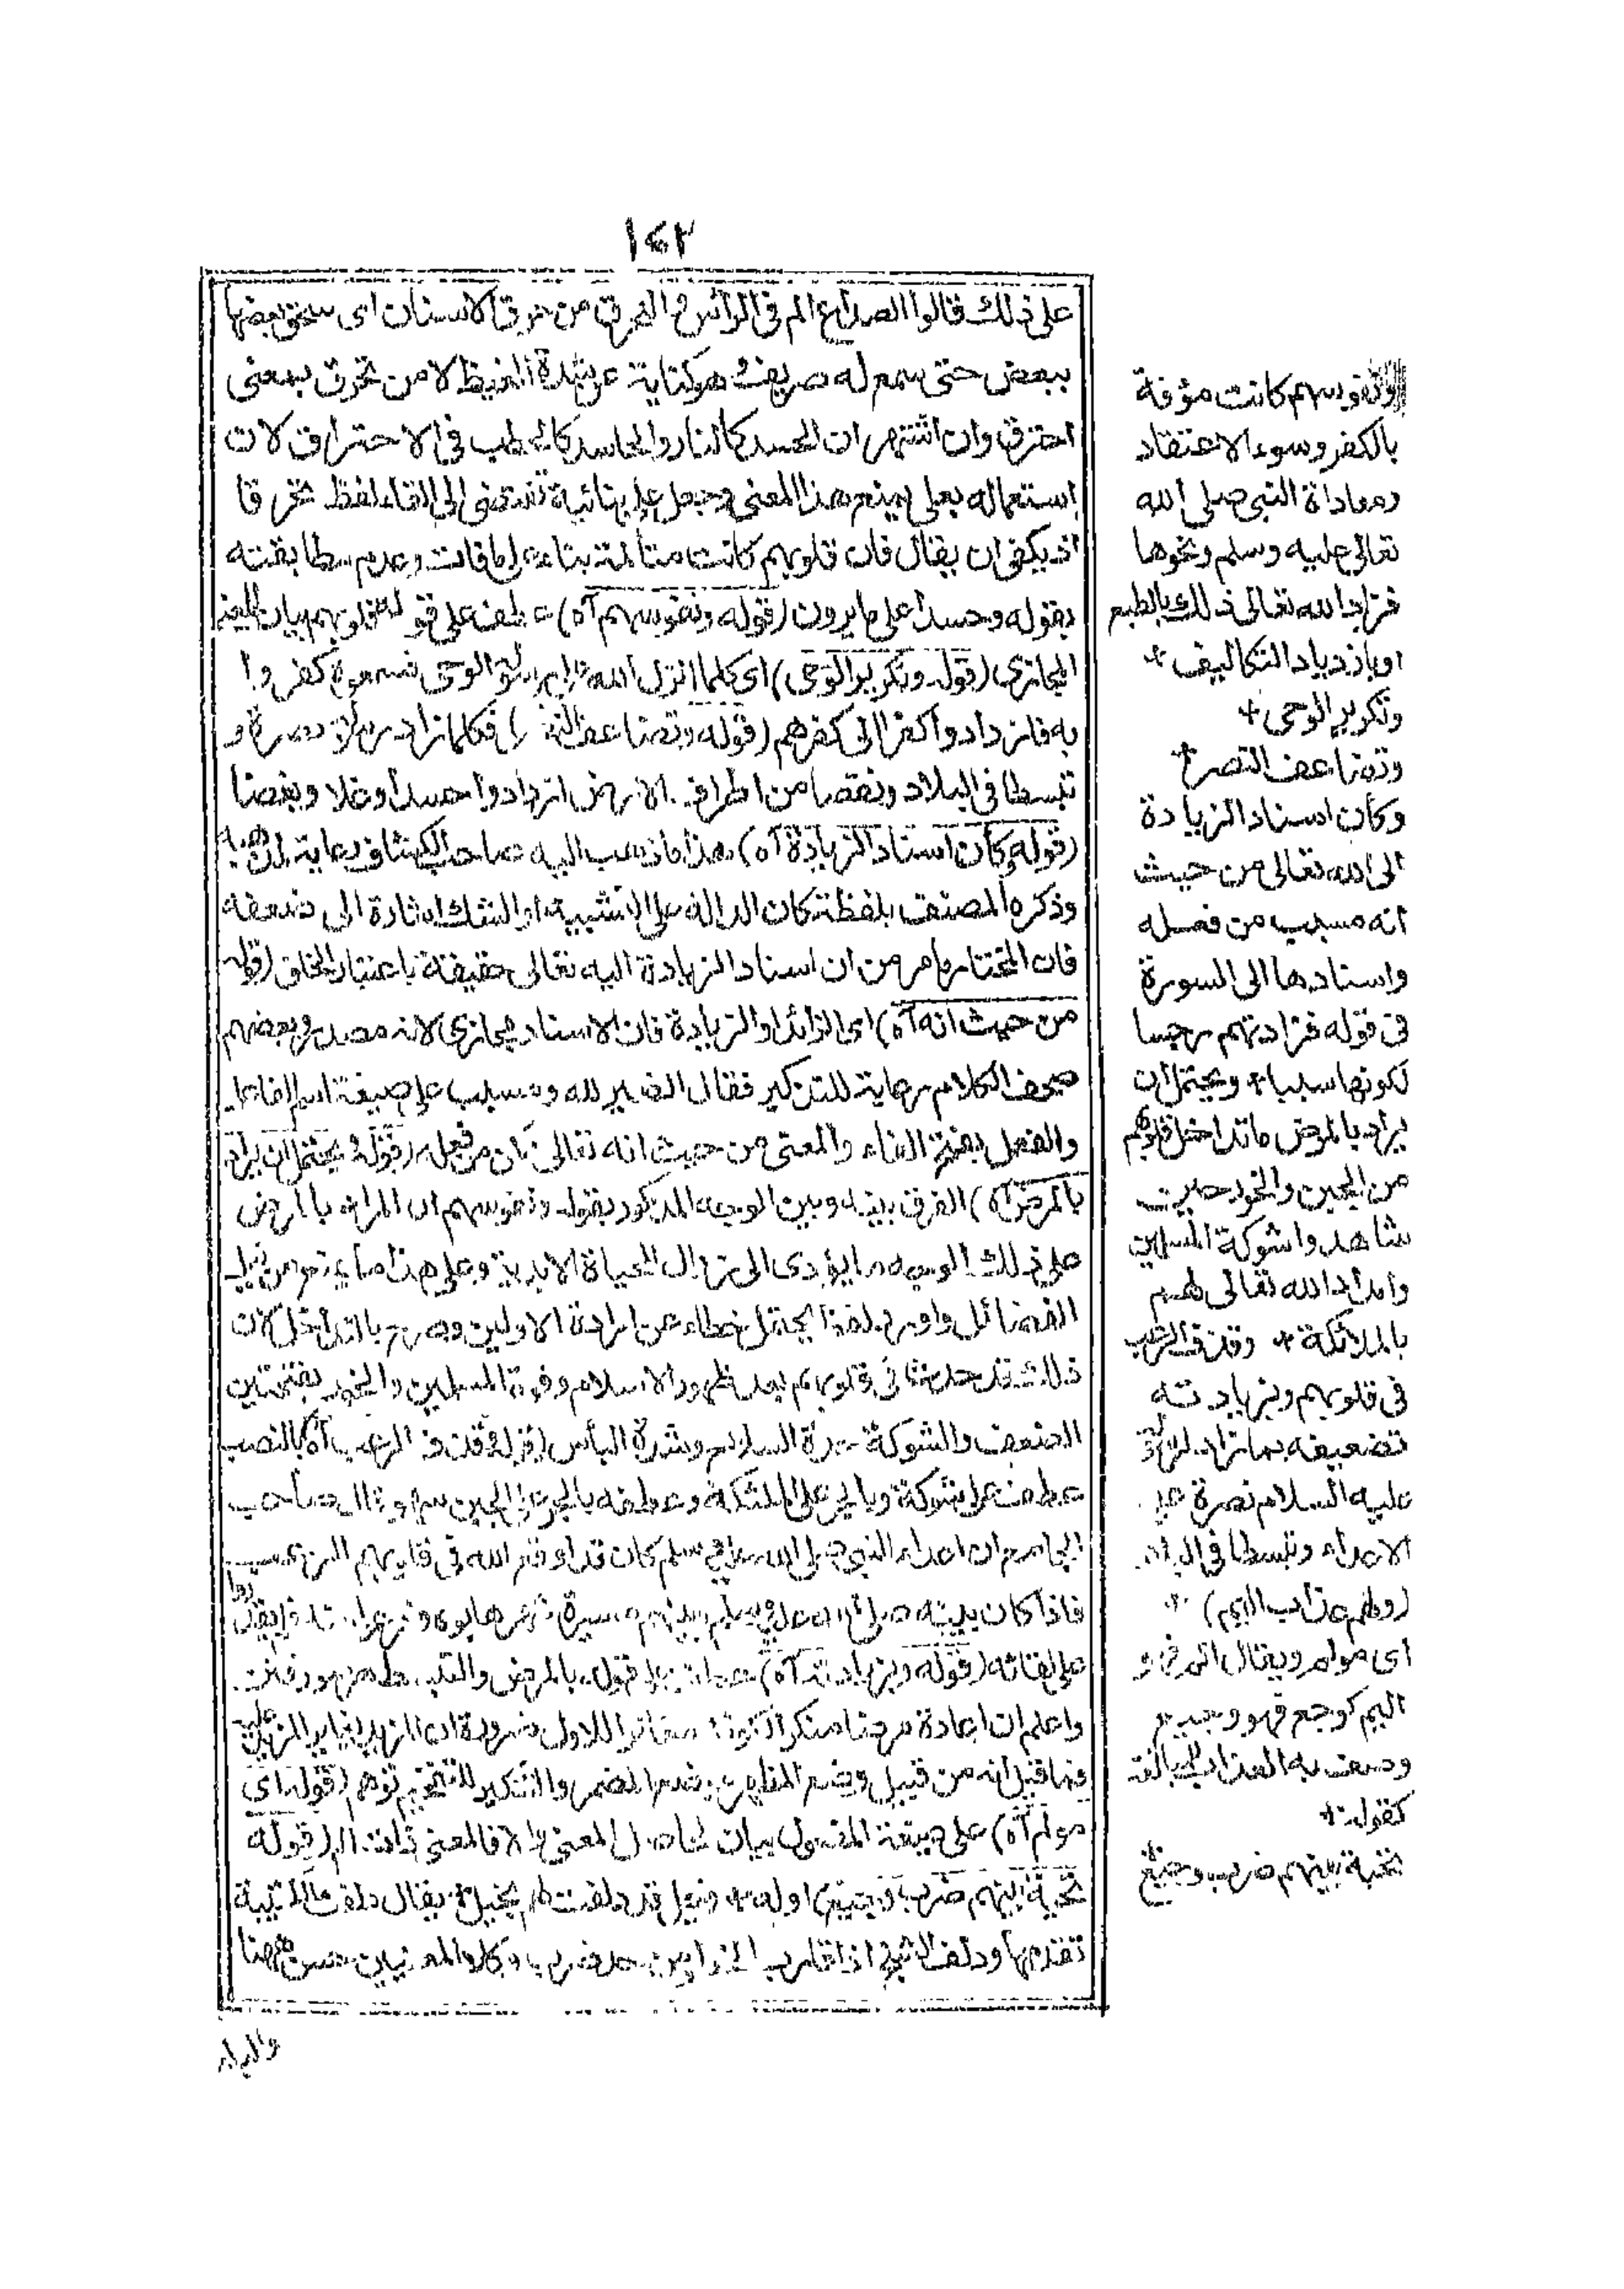 ١٤٢
على ذلك قالوا الصداع الم فى الرأس والحرق من حرق الاسنان اى سحق بعضها
ببعض حتى سمع له صريف وهو كناية عن شدة الغيظ لا من تحرق بمعنى
احترق وان اشتهر ان الحسد كالنار والحاسد كالحطب فى الاحتراق لان
استعماله بعلى يمنع هذا المعنى وجعل على بنائية تقتضى الى القاء لفظ تحرقا
اذ يكفى ان يقال فان قلوبهم كانت متألمة بناء على ما فات وعدم مطابقته
بقوله وحسدا على ما يرون (قوله ونفوسهم آه) عطف على قوله قلوبهم بيان للمعنى
المجازى (قوله وتكرير الوحى) اى كلما انزل الله على رسوله الوحى فسمعوه كفروا
به فازدادوا كفرا الى كفرهم (قوله وتضاعف النصر) فكلما زاد رسوله نصرة و
تبسطا فى البلاد ونقصا من اطراف الارض ازدادوا حسدا وغلا وبغضا
(قوله وكأن اسناد الزيادة آه) هذا ما ذهب اليه صاحب الكشاف رعاية لمذهبه
وذكره المصنف بلفظة كان الدالة على التشبيه او الشك اشارة الى ضعفه
فان المختار ما مر من ان اسناد الزيادة اليه تعالى حقيقة باعتبار الخلق (قوله
من حيث انه آه) اى الزائد او الزيادة فان الاسناد مجازى لانه مصدر وبعضهم
صحف الكلام رعاية للتذكير فقال الضمير لله ومسبب على صيغة اسم الفاعل
والفعل بفتح الفاء والمعنى من حيث انه تعالى من فعل (قوله ويحتمل ان يراد
بالمرض آه) الفرق بينه وبين الوجه المذكور بقوله ونفوسهم ان المراد بالمرض
على ذلك الوجه ما يؤدى الى زوال الحياة الابدية وعلى هذا ما يمنع من نيل
الفضائل واورد لفظ يحتمل خطاء عن ارادة الاولين وصرح بالتداخل لان
ذلك قد حدث فى قلوبهم بعد ظهور الاسلام وقوة المسلمين والخور بفتحتين
الضعف والشوكة حدة السلاح وشدة البأس (قوله وقذف الرعب آه) بالنصب
عطف على شوكة وبالجر على الملئكة وعطفه بالجر على الجبن سهو قال صاحب
الجامع ان اعداء النبى صلى الله عليه وسلم كان قد اوقع الله فى قلوبهم الرعب
فاذا كان بينه صلى الله عليه وسلم وبينهم مسيرة شهر هابوه وفزعوا منه فلم يقدموا
على لقائه (قوله وبزيادته آه) عطف على قوله بالمرض
واعلم ان اعادة مرضا منكرا لكونه مغائرا للاول ضرورة ان المزيد يغاير المزيد عليه
فما قيل انه من قبيل وضع المظهر موضع المضمر والتنكير للتفخيم توهم (قوله اى
مولم آه) على صيغة المفعول بيان لحاصل المعنى والا فالمعنى ذات الم (قوله
تحية بينهم ضرب وجيع) اوله + وخيل قد دلفت لهم بخيل + يقال دلفت الكتيبة
تقدمها ودلف الشيخ اذا قارب الخطا وكلا المعنيين حسن ههنا
والباء
ونفوسهم كانت مؤفة
بالكفر وسوء الاعتقاد
ومعاداة النبى صلى الله
تعالى عليه وسلم ونحوها
فزاد الله تعالى ذلك بالطبع
او بازدياد التكاليف +
وتكرير الوحى +
وتضاعف النصر +
وكأن اسناد الزيادة
الى الله تعالى من حيث
انه مسبب من فعله
واسنادها الى السورة
فى قوله فزادتهم رجسا
لكونها سببا + ويحتمل ان
يراد بالمرض ما تداخل قلوبهم
من الجبن والخور حين
شاهدوا شوكة المسلمين
وامداد الله تعالى لهم
بالملائكة + وقذف الرعب
فى قلوبهم وبزيادته
تضعيفه بما زاد لرسوله
عليه السلام نصرة على
الاعداء وتبسطا فى البلاد
(ولهم عذاب اليم) +
اى مولم ويقال الم فهو
اليم كوجع فهو وجيع
وصف به العذاب للمبالغة
كقوله +
تحية بينهم ضرب وجيع